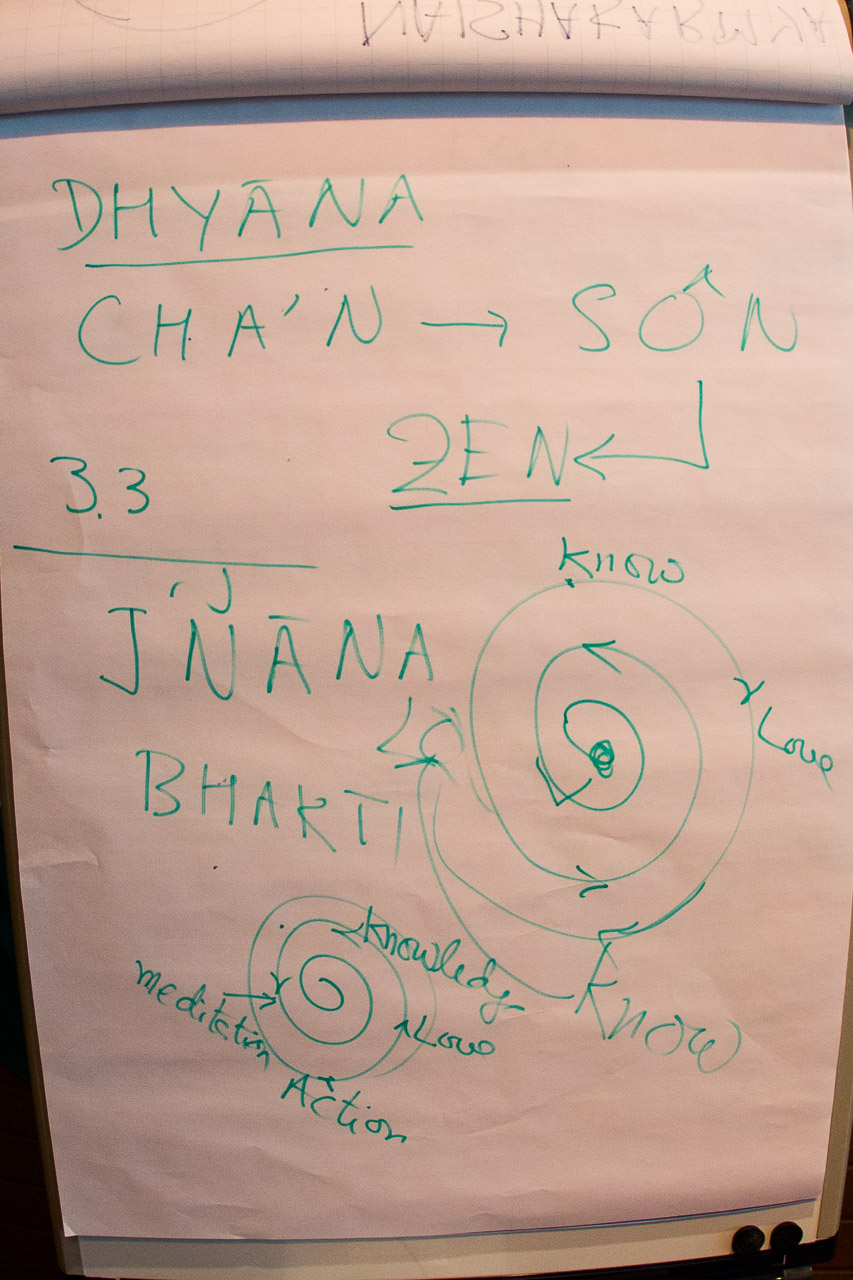 NAISHAKARMYA
DHYĀNA
CHA'N → SÔN
ZEN ←
3.3
JÑĀNA
BHAKTI
Know
Love
Know
Knowledge
Love
Meditation
Action